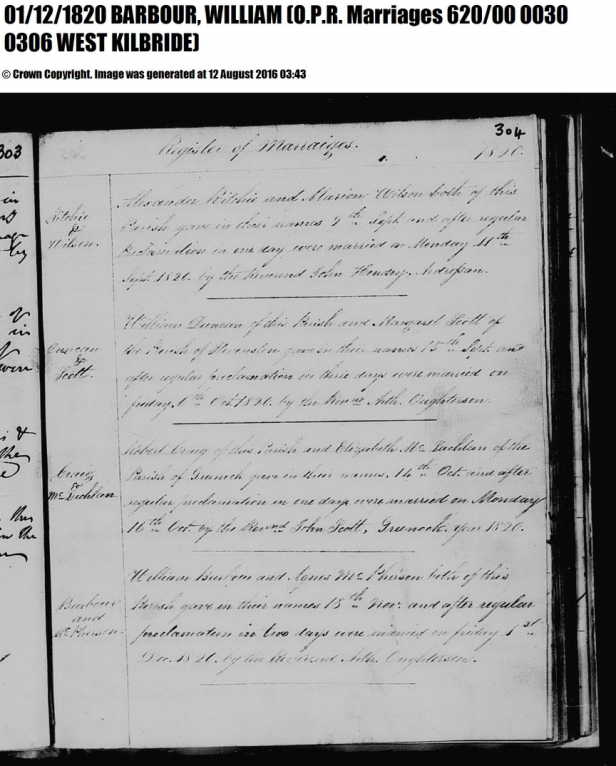 01/12/1820 BARBOUR, WILLIAM (O.P.R. Marriages 620/00 0030
0306 WEST KILBRIDE)
© Crown Copyright. Image was generated at 12 August 2016 03:43
303
304
Register of Marraiges.
1820.
Ritchie
&
Wilson.
Alexander Ritchie and Marion Wilson both of this
Parish gave in their names 9th Sept. and after regular
Proclamation in one day were married on Monday 11th
Sept. 1820. by the Reverend John
Duncan
&
Scott.
William Duncan of this Parish and Margaret Scott of
the Parish of Stevenston gave in their names 15th Sept. and
after regular proclamation in three days were married on
friday 6th Oct. 1820. by the Revnd Arth. Oughterson.
Craig
&
Mc Lachlan
Robert Craig of this Parish and Elizabeth Mc Lachlan of the
Parish of Greenock gave in their names 14th Oct. and after
regular proclamation in one day were married on Monday
16th Oct. by the Revnd John Scott, Greenock. year 1820.
Barbour
and
Mc Pherson.
William Barbour and Agnes Mc Pherson both of this
Parish gave in their names 18th Nov. and after regular
proclamation in two days were married on friday 1st
Dec. 1820. by the Reverend Arth. Oughterson.